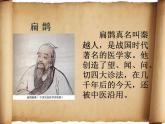 扁鹊
扁鹊真名叫秦
越人，是战国时代
著名的医学家，他
总结了望、闻、问、
切四大诊法，在几
千年后的今天，还
被中医沿用。